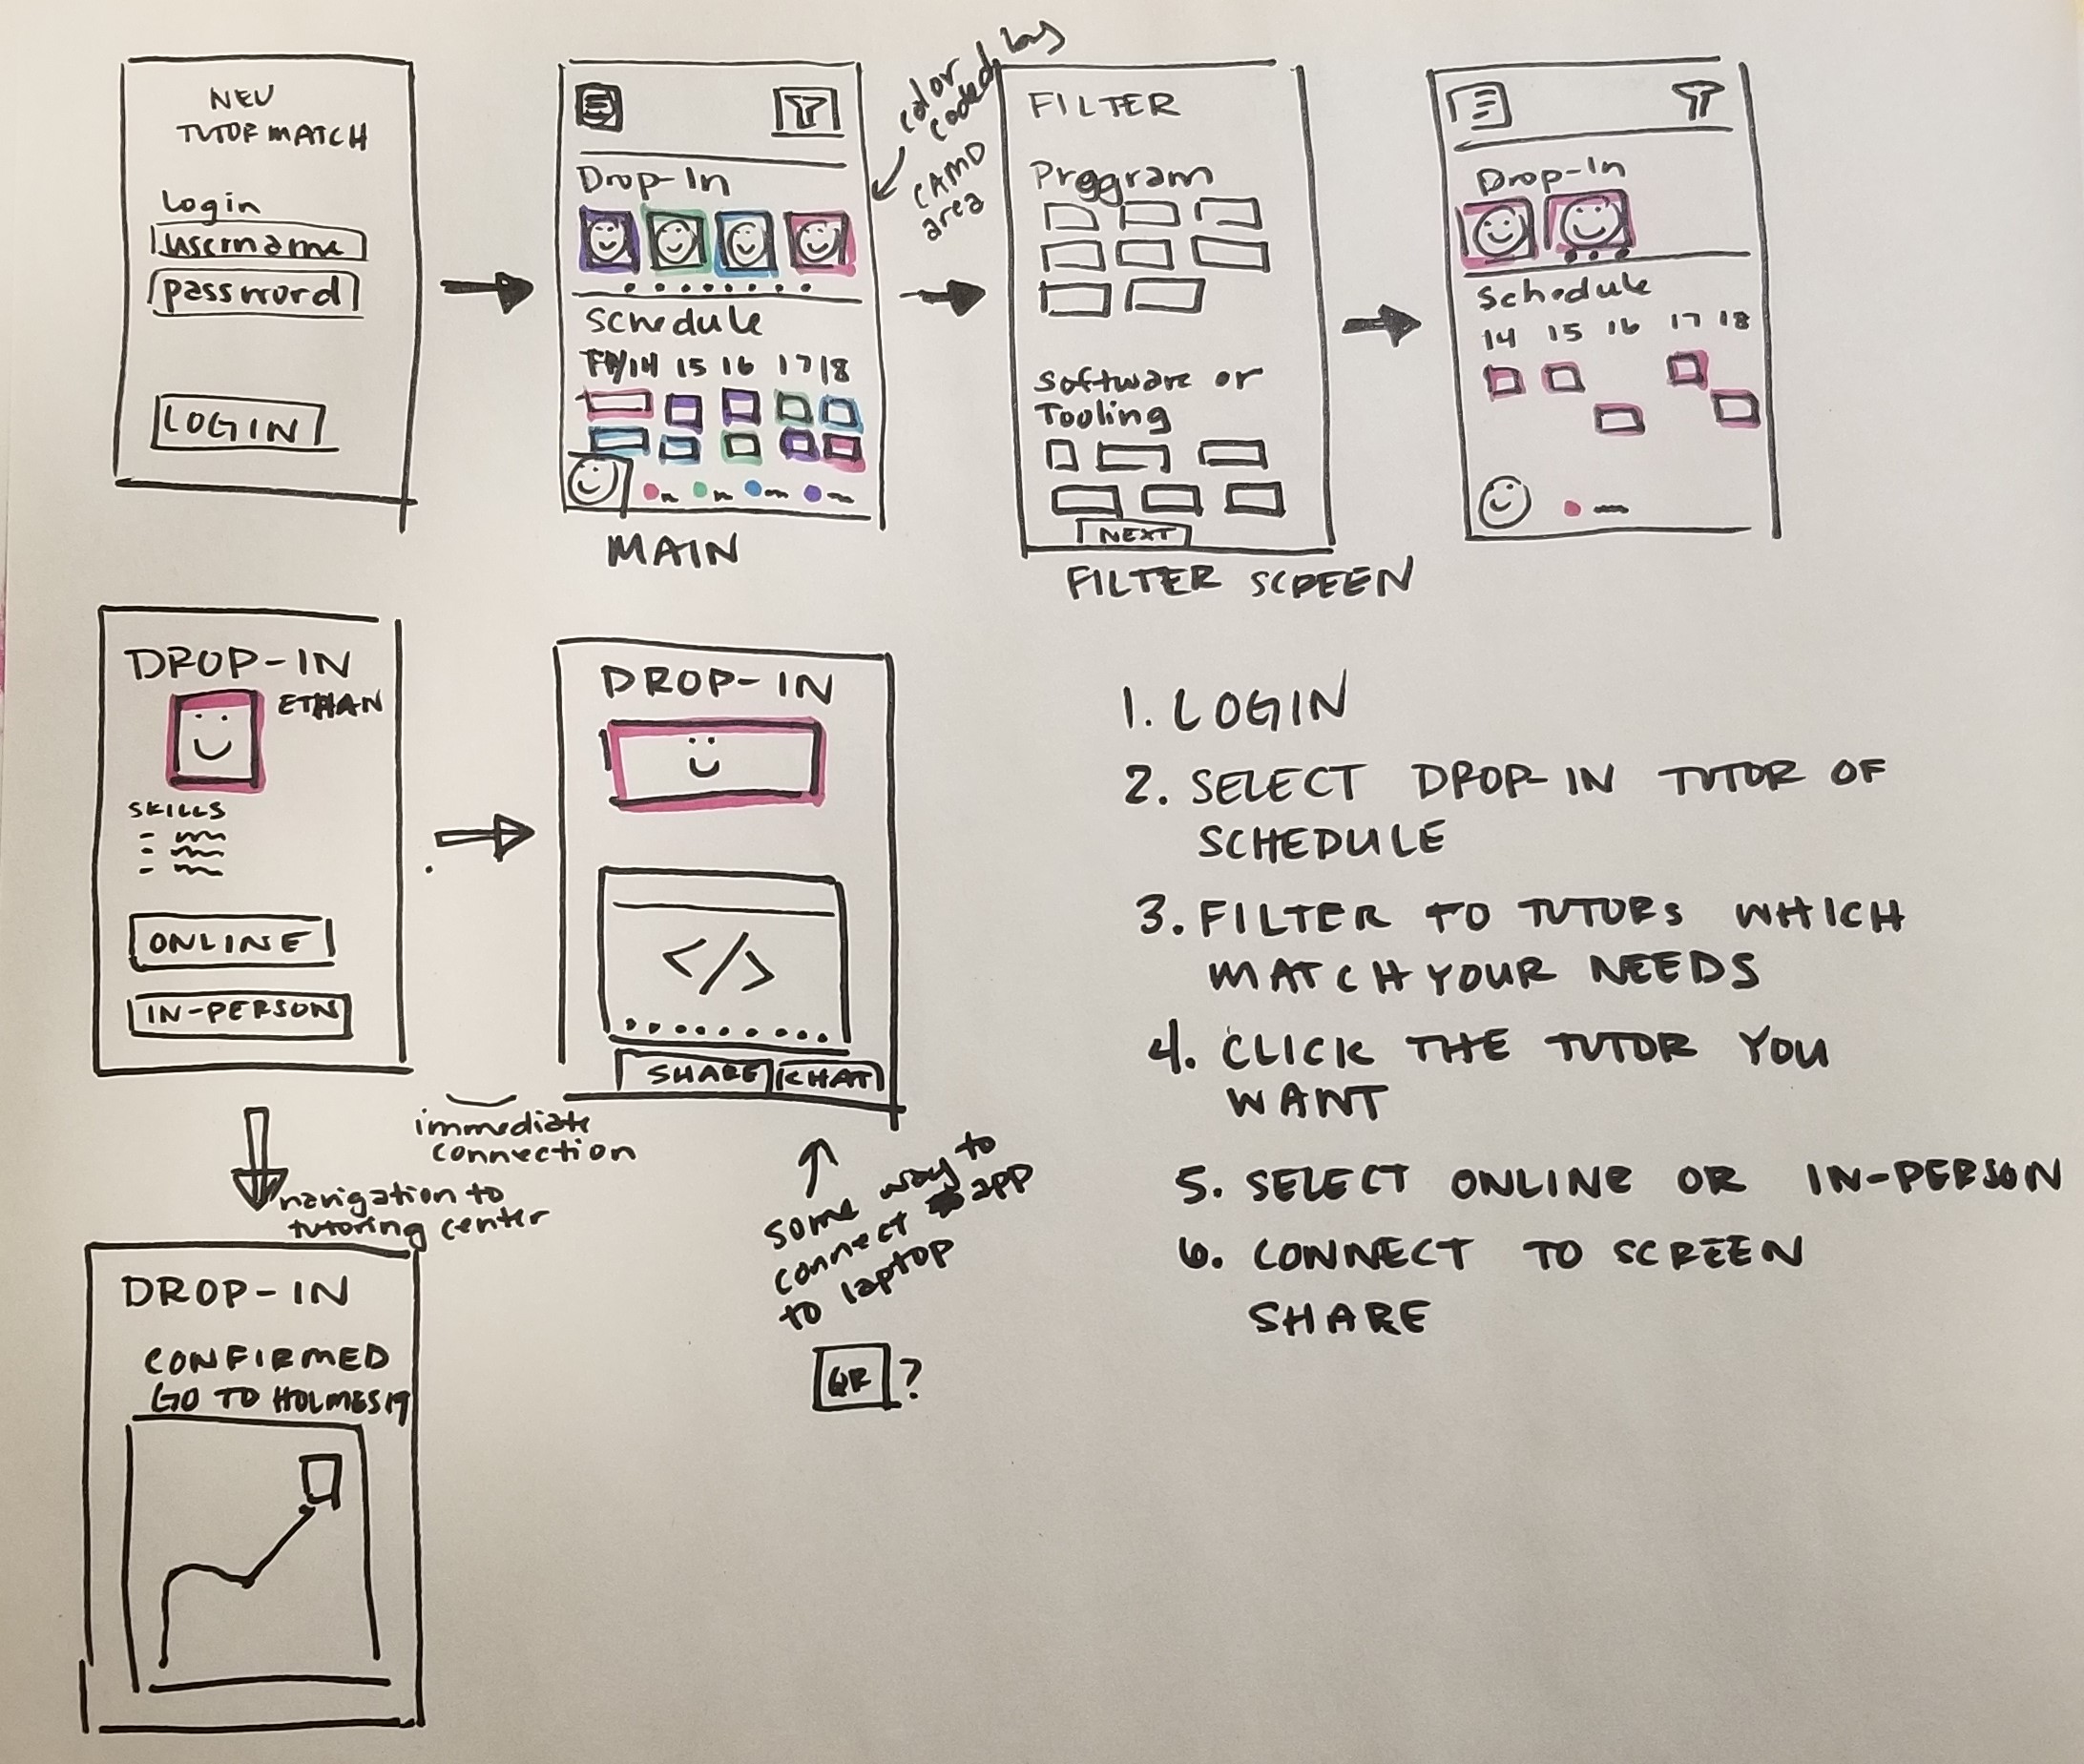 NEU
TUTOR MATCH
Login
username
password
LOGIN
Drop-In
Schedule
14 15 16 17 18
MAIN
color
coded by
CAMD
area
FILTER
Program
Software or
Tooling
NEXT
FILTER SCREEN
Drop-In
Schedule
14 15 16 17 18
DROP-IN
ETHAN
SKILLS
ONLINE
IN-PERSON
immediate
connection
DROP-IN
</>
SHARE
CHAT
some way to
connect app
to laptop
QR ?
navigation to
tutoring center
DROP-IN
CONFIRMED
GO TO HOLMES 19
1. LOGIN
2. SELECT DROP-IN TUTOR OF
SCHEDULE
3. FILTER TO TUTORS WHICH
MATCH YOUR NEEDS
4. CLICK THE TUTOR YOU
WANT
5. SELECT ONLINE OR IN-PERSON
6. CONNECT TO SCREEN
SHARE